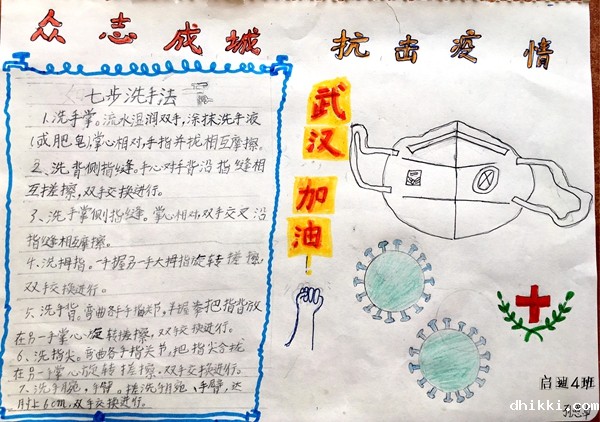 众志成城 抗击疫情
七步洗手法
1.洗手掌。流水湿润双手,涂抹洗手液
(或肥皂)掌心相对,手指并拢相互摩擦。
2、洗背侧指缝。手心对手背沿指缝相
互搓擦,双手交换进行。
3、洗手掌侧指缝。掌心相对,双手交叉沿
指缝相互摩擦。
4、洗拇指。一手握另一手大拇指旋转搓擦,
双手交换进行。
5、洗手背。弯曲各手指关节,半握拳把指背放
在另一手掌心旋转搓擦,双手交换进行。
6、洗指尖。弯曲各手指关节,把指尖合拢
在另一手掌心旋转搓擦,双手交换进行。
7、洗手腕,手臂。搓洗手腕、手臂,达
肘上6cm,双手交换进行。
武汉
加油!
启迪4班
dhikki.com